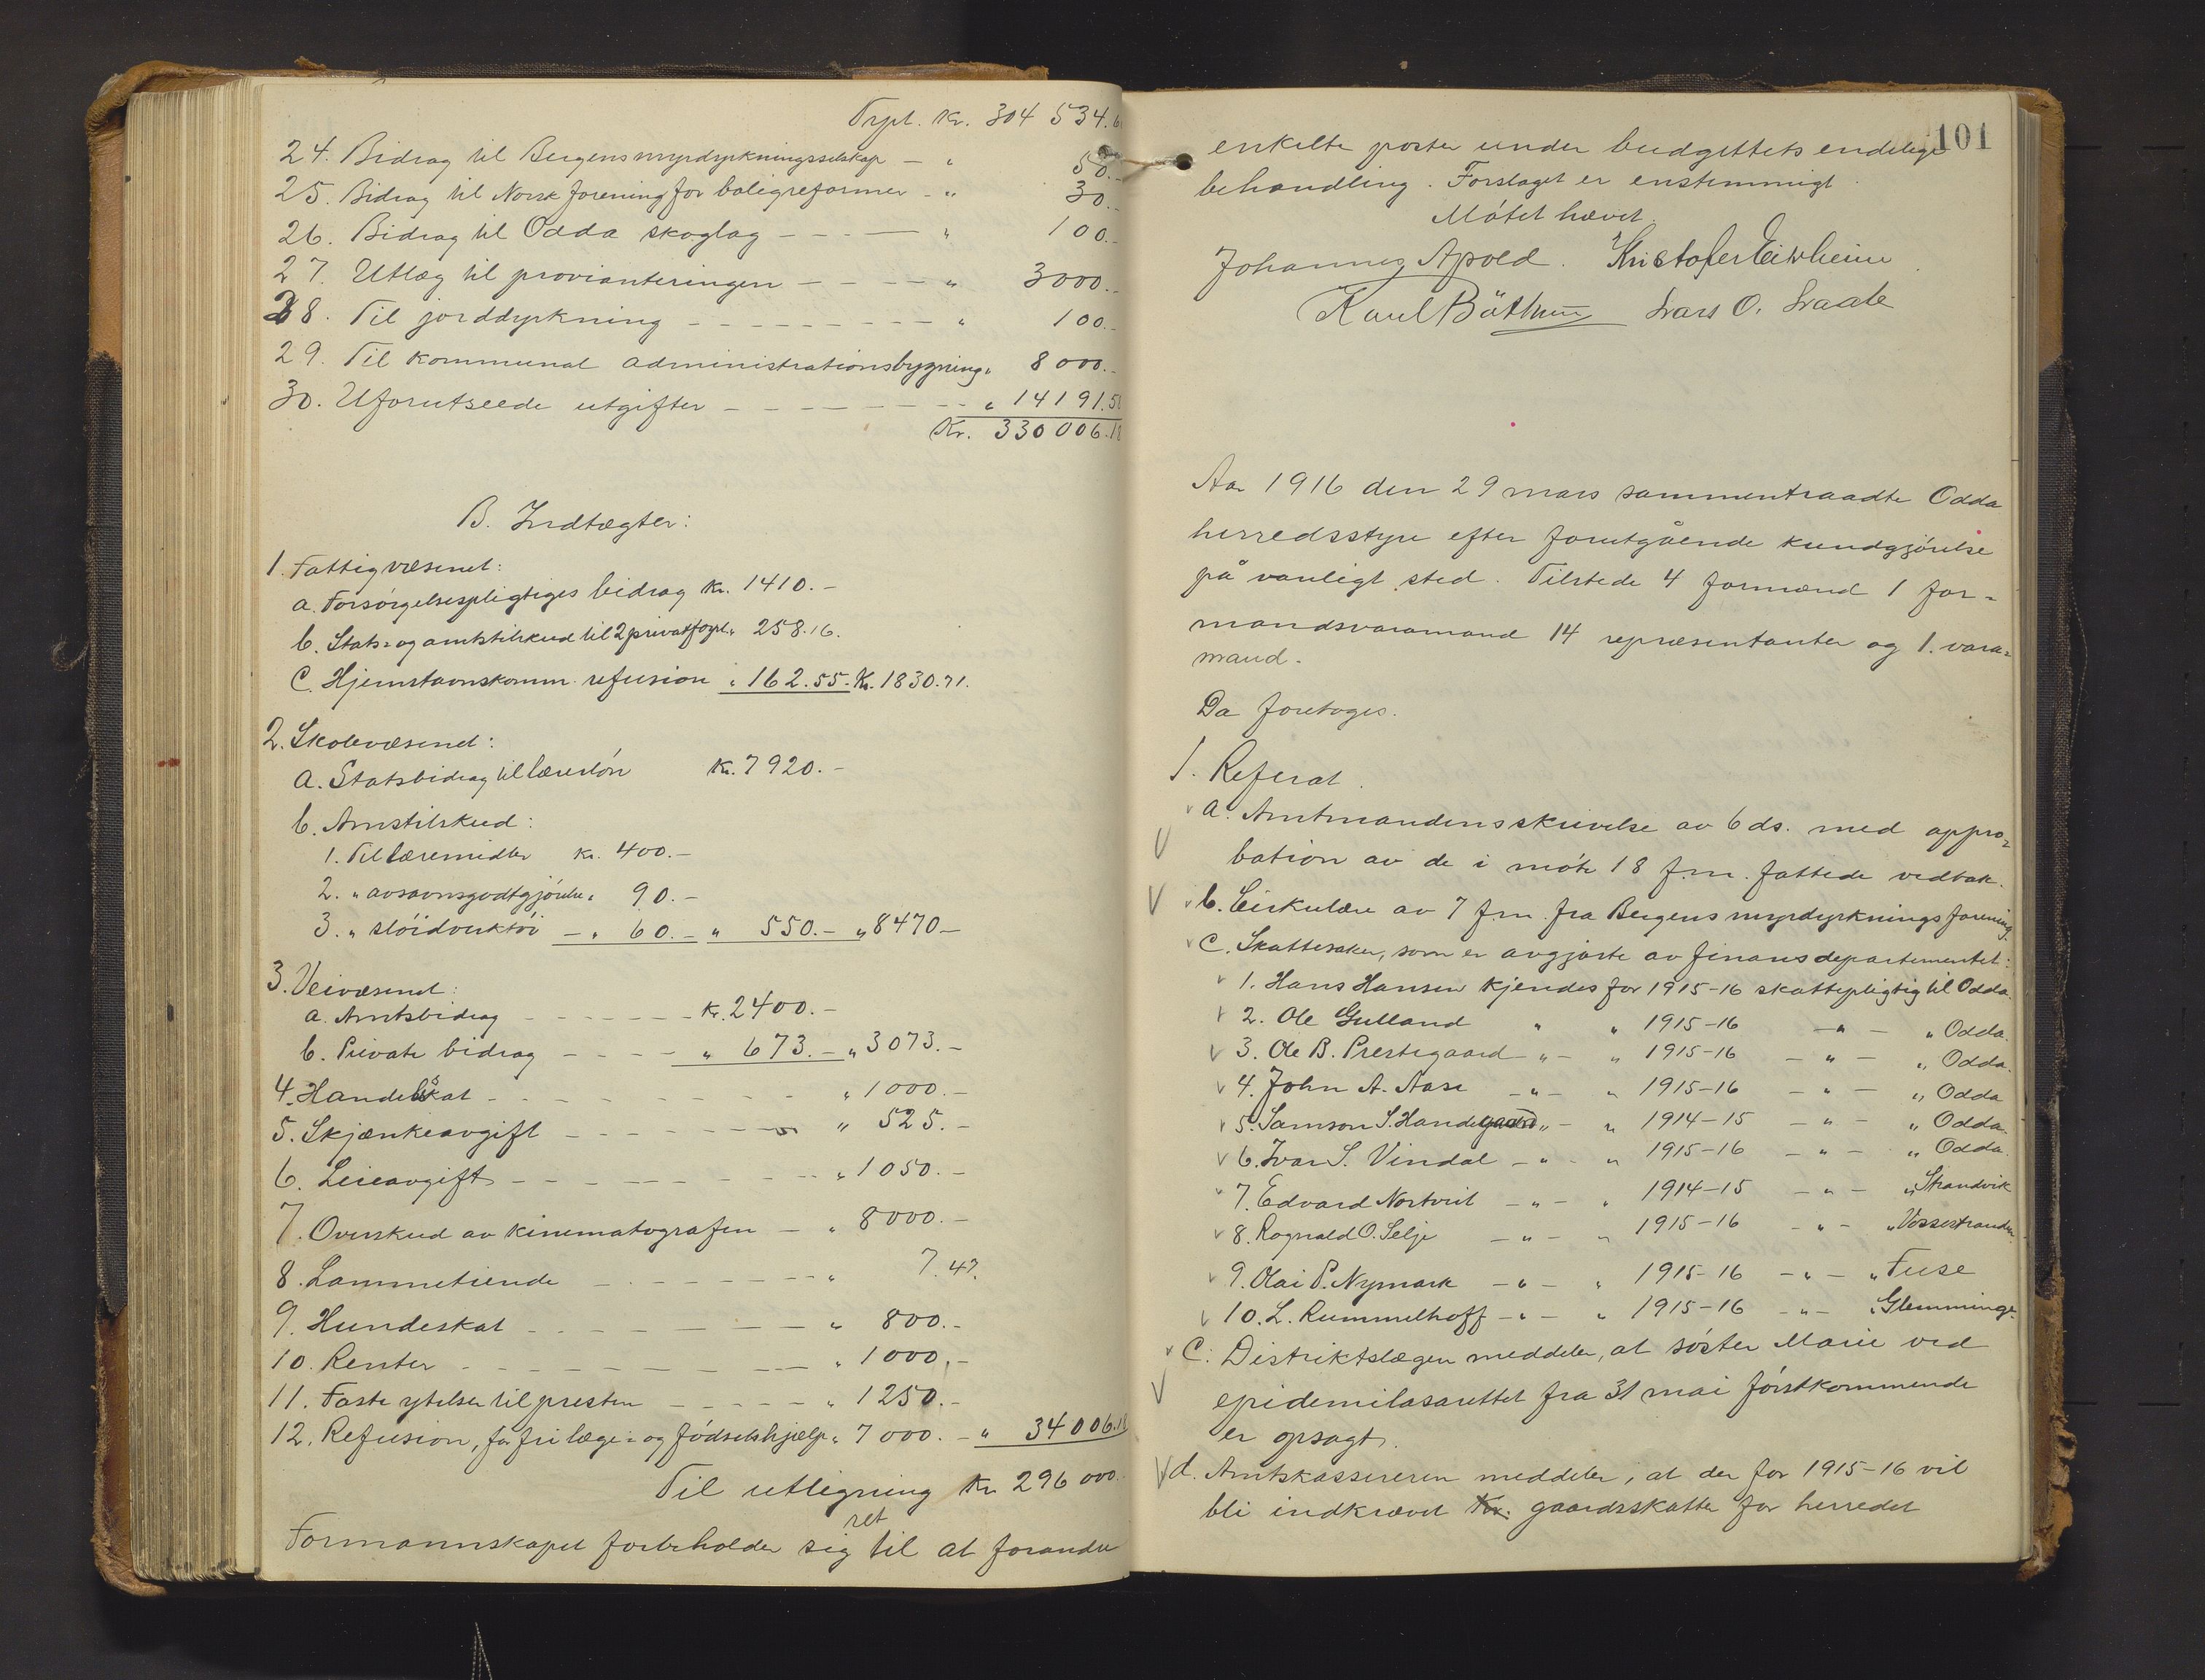 Trpt. Kr. 304 534.6
24. Bidrag til Bergens myrdyrkningsselskap — " 50.-
25. Bidrag til Norsk forening for boligreformer - " 30.-
26. Bidrag til Odda skoglag - - - — " 100.-
27. Utlæg til provianteringen - - - - — " 3000.-
28. Til jorddyrkning - - - - - - - - - " 100.-
29. Til kommunal administrationsbygning " 8000.-
30. Uforutseede utgifter — - - - - - - - " 14191.58
Kr. 330006.18
B. Indtægter:
1. Fattigvæsenet:
a. Forsørgelsespligtiges bidrag Kr. 1410.-
b. Stats- og amtstilskud til 2 privatforpl. " 258.16.
c. Hjemstavnskomm. refusion " 162.55.- Kr. 1830.71.
2. Skolevæsenet:
a. Statsbidrag til lærerløn Kr. 7920.-
b. Amstilskud:
1. Til læremidler Kr. 400.-
2. " avsavnsgodtgjørelse " 90.-
3. " sløidverktøi — " 60.- " 550.- " 8470-
3. Veivæsenet:
a. Amtsbidrag - - - - - - - Kr. 2400.-
b. Private bidrag - - - - " 673.- " 3073.-
4. Handelsskat - - - - - - - - - " 1000.-
5. Skjænkeavgift - - - - - - - - " 525.-
6. Leieavgift - - - - - - - - - " 1050.-
7. Overskud av kinematografen — " 8000.-
8. Lammetiende - - - - - - - - " 7.47.
9. Hundeskat - - - - - - - - " 800.-
10. Renter - - - - - - - - - " 1000.-
11. Faste ytelser til presten - - - - - " 1250.-
12. Refusion, for fri læge- og fødselshjælp " 7000.- " 34006.18
Til utligning Kr 296 000.
ret
Formannskapet forbeholder sig til at forandre
101
enkelte poster under budgettets endelige
behandling. Forslaget er enstemmigt.
Møtet hævet.
Johannes Apold. Kristofer Eitrheim
Karl Bøthun Lars O. Traate
Aar 1916 den 29 mars sammentraadte Odda
herredsstyre efter forutgående kundgjørelse
på vanligt sted. Tilstede 4 formænd 1 for-
mandsvaramand 14 repræsentanter og 1. vara-
mand.
Da foretoges.
1. Referat.
a. Amtmandens skrivelse av 6 ds. med appro-
bation av de i møte 18 f.m. fattede vedtak.
b. Cirkulære av 7 f.m. fra Bergens myrdyrkningsforening.
c. Skattesaker, som er avgjorte av finansdepartementet:
1. Hans Hansen kjendes for 1915-16 skattepligtig til Odda.
2. Ole Gulland " " 1915-16 - " - " Odda.
3. Ole B. Prestegaard - " - " 1915-16 - " - " Odda.
4. John A. Aase - " - " 1915-16 - " - " Odda
5. Samson S. Handegaard " - " 1914-15 - " - " Odda.
6. Ivar S. Vindal - " - " 1915-16 - " - " Odda.
7. Edvard Nortveit - " - " 1914-15 - " - " Strandvik
8. Rognald O. Selje - " - " 1915-16 - " - " Vossestranden.
9. Olai P. Nymark - " - " 1915-16 - " - " Fuse
10. L. Rummelhoff - " - " 1915-16 - " - " Glemminge.
C. Distriktslægen meddeler, at søster Marie ved
epidemilasarettet fra 31 mai førstkommende
er opsagt.
d. Amtskassereren meddeler, at der for 1915-16 vil
bli indkrævet Kr. gaardsskatte for herredet